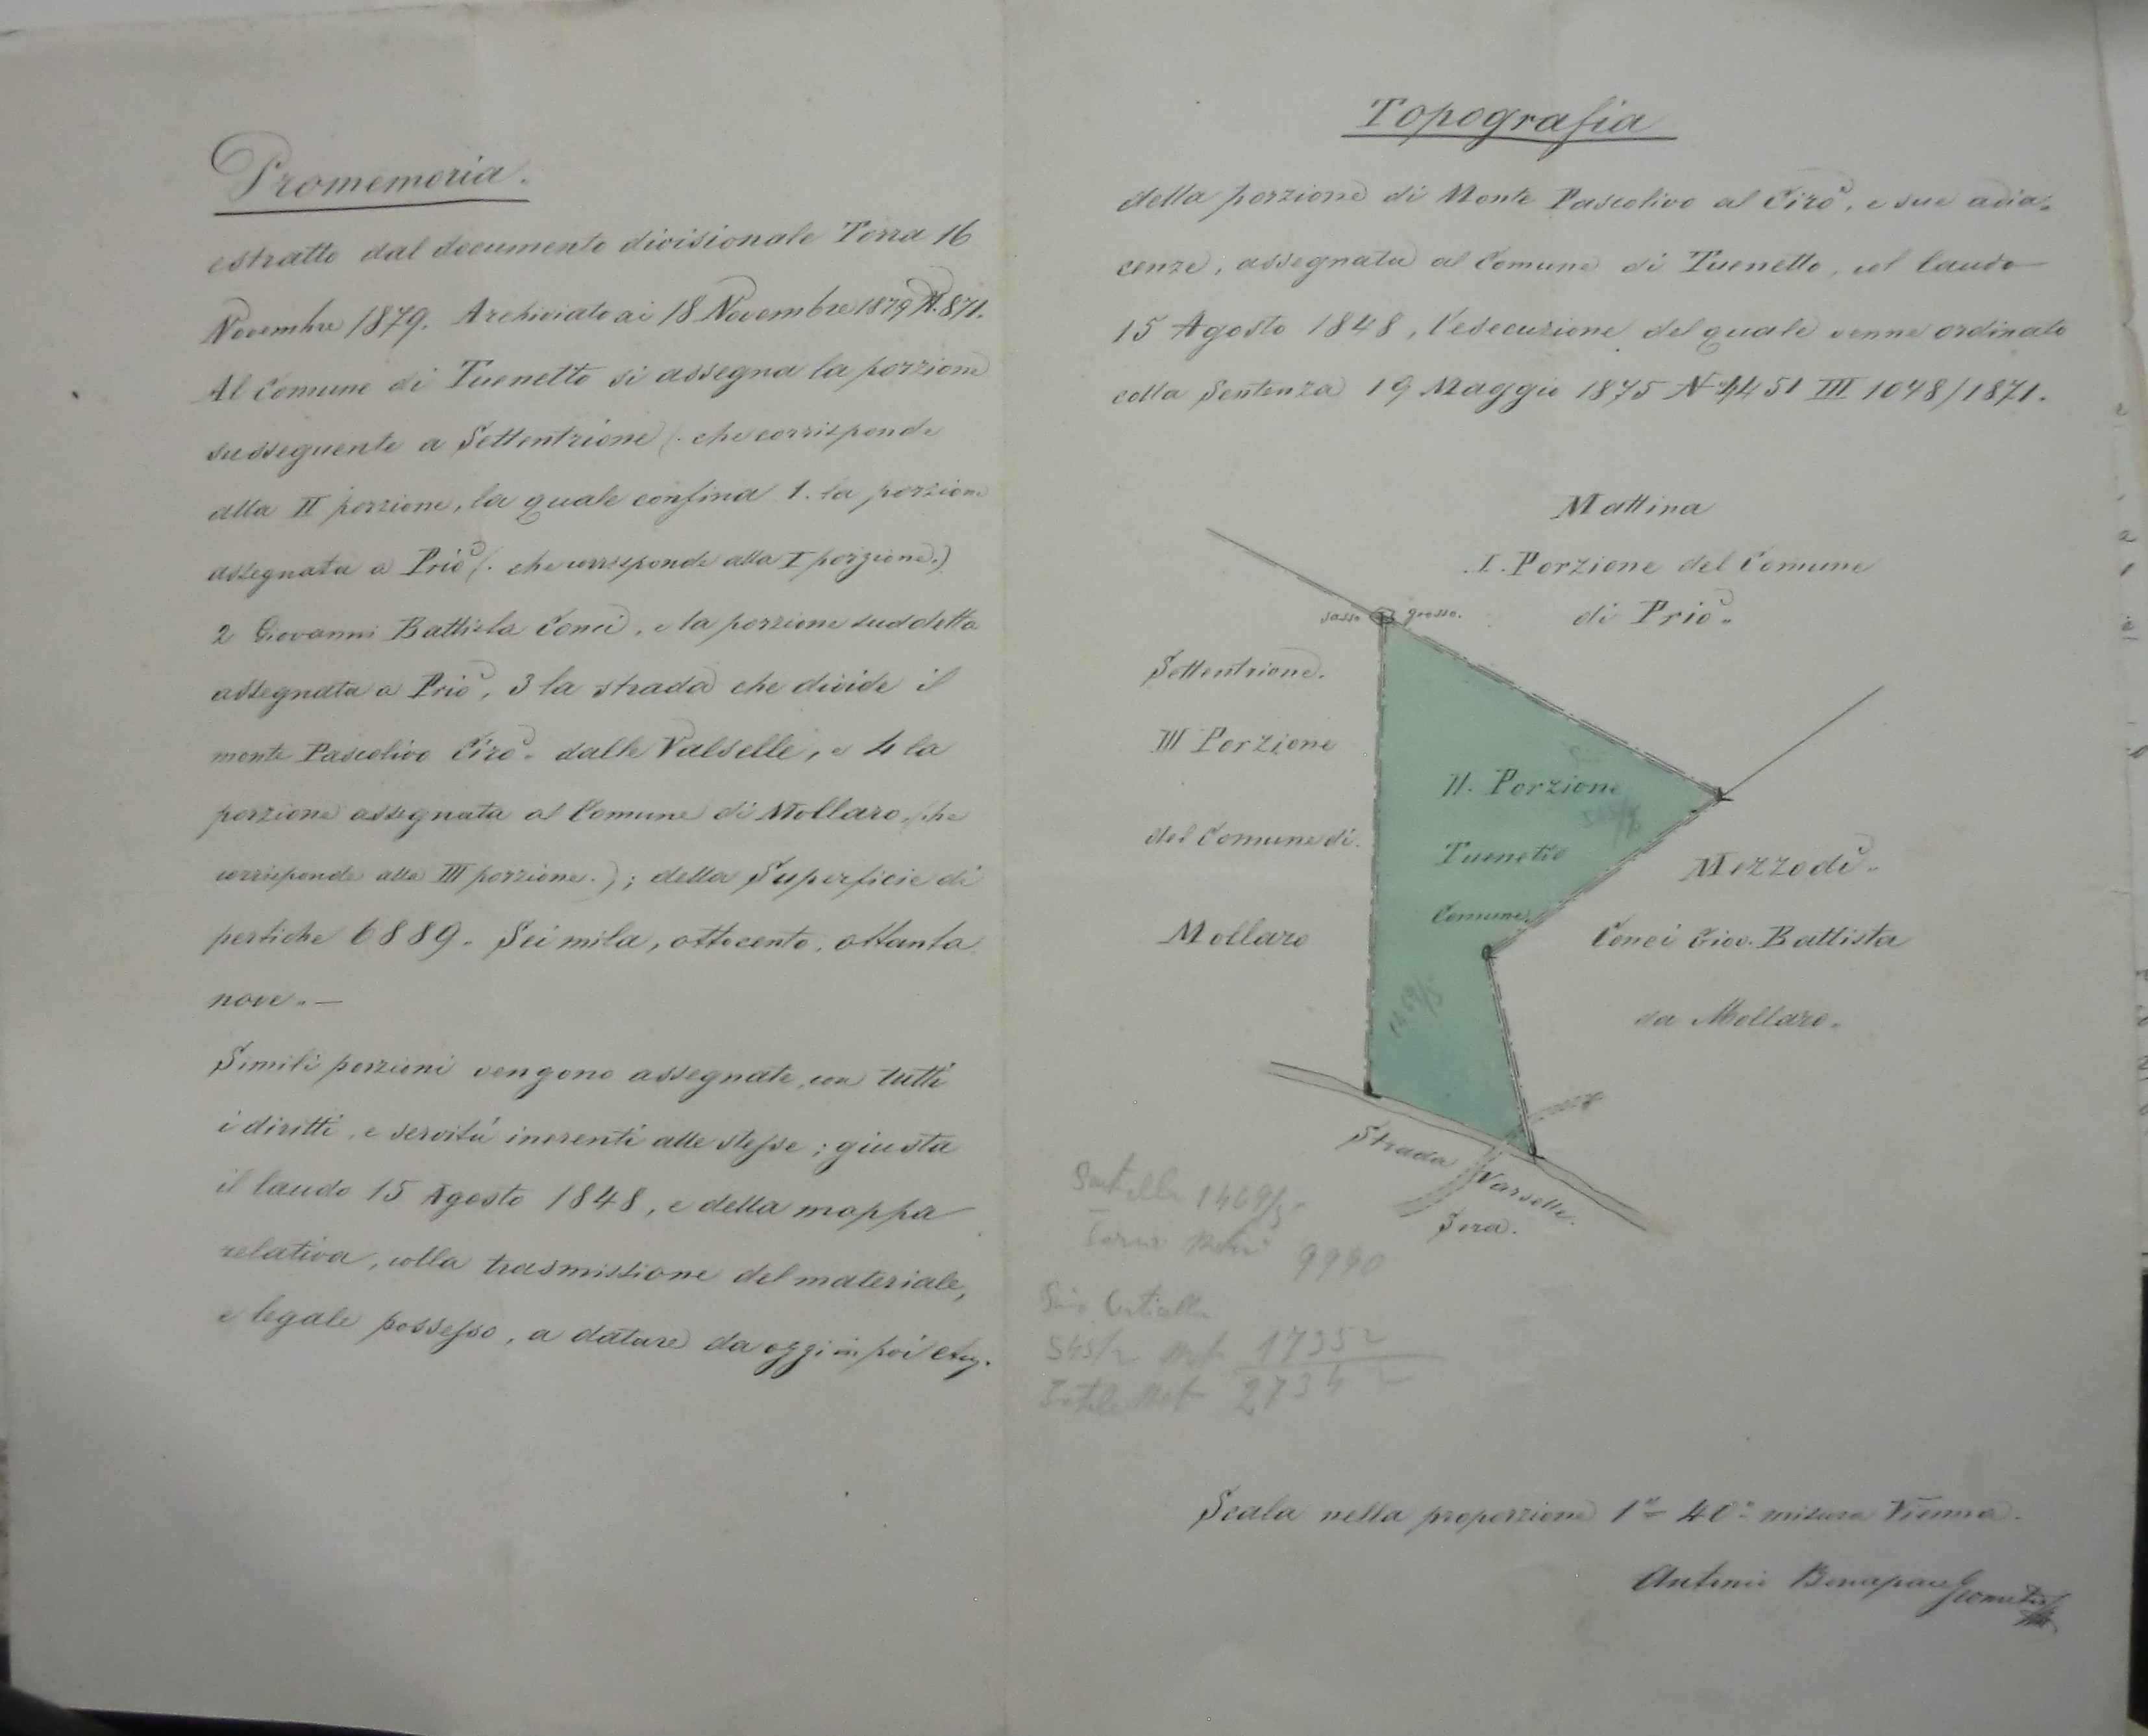 Promemoria.
estratto dal documento divisionale Torra 16
Novembre 1879. Archiviato ai 18 Novembre 1879 N. 871.
Al Comune di Tuenetto si assegna la porzione
susseguente a Settentrione (. che corrisponde
alla II porzione, la quale confina 1. la porzione
assegnata a Priò (. che corrisponde alla I porzione.)
2 Giovanni Battista Conci, e la porzione suddetta
assegnata a Priò, 3 la strada che divide il
monte Pascolivo Cirò. dalle Valselle, e 4 la
porzione assegnata al Comune di Mollaro (che
corrisponde alla III porzione.); della Superficie di
pertiche 6889. Sei mila, ottocento, ottanta
nove. —
Simili porzioni vengono assegnate, con tutti
i diritti, e servitú inerenti alle stesse; giusta
il laudo 15 Agosto 1848, e della mappa
relativa, colla trasmissione del materiale,
e legale possesso, a datare da oggi in poi
Topografia
della porzione di Monte Pascolivo al Cirò, e sue adia-
cenze, assegnata al Comune di Tuenetto, col laudo
15 Agosto 1848, l'esecuzione del quale venne ordinato
colla Sentenza 19 Maggio 1875 N 4451 III 1048/1871.
Mattina
I. Porzione del Comune
di Priò.
sasso grosso.
Settentrione.
III Porzione
del Comune di
Mollaro
II. Porzione
Tuenetto
Comune
1469/3
Mezzodì.
Conci Giov. Battista
da Mollaro.
Strada Varselle.
Sera.
1469/3
9990
17352
27342
Scala nella proporzione 1" = 40° misura Vienna.
Antonio Bonapace Geometra